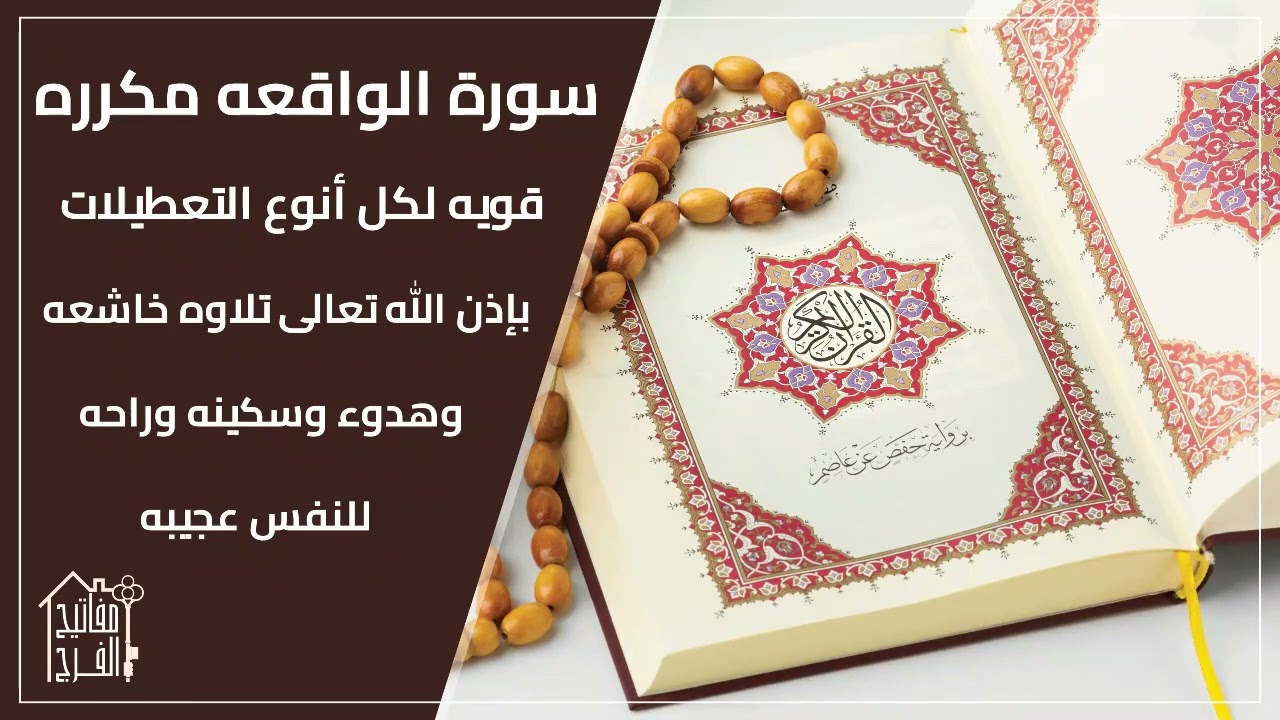 سورة الواقعه مكرره
قويه لكل أنوع التعطيلات
بإذن الله تعالى تلاوه خاشعه
وهدوء وسكينه وراحه
للنفس عجيبه
مفاتيح
الفرج
القرآن الكريم
برواية حفص عن عاصم